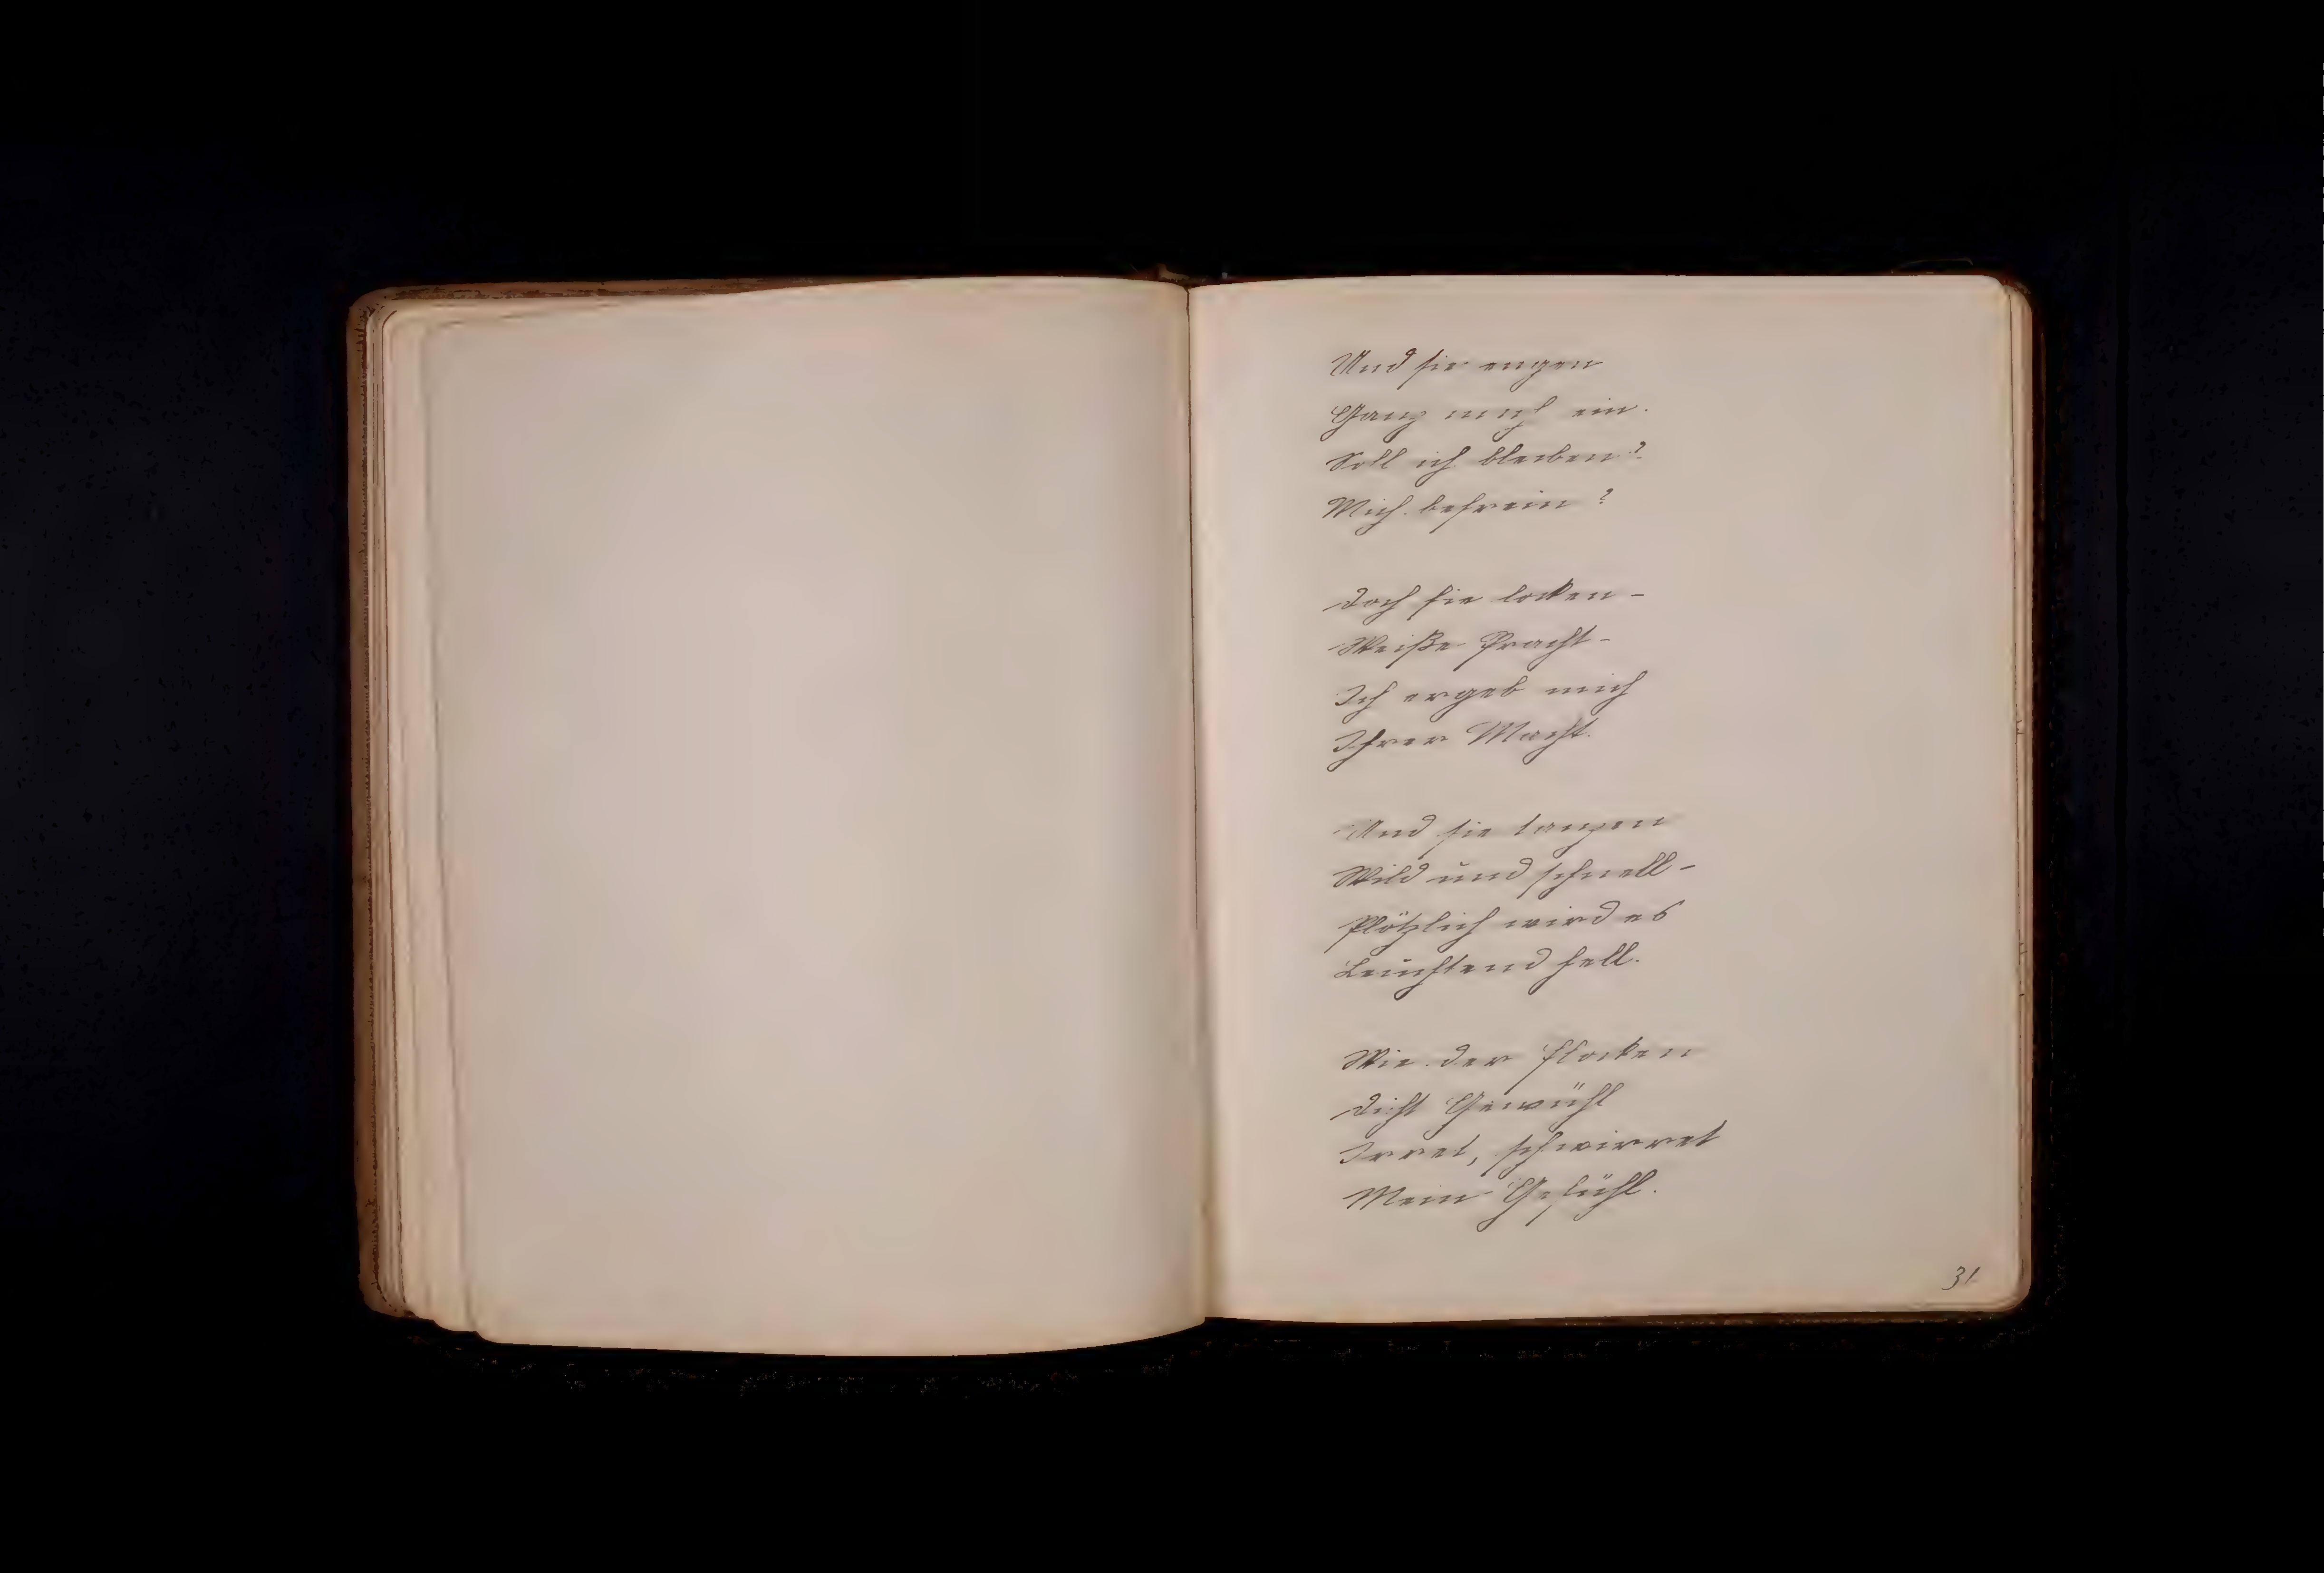 Und sie engen
Ganz mich ein.
Soll ich bleiben?
Mich befrein?
Doch sie locken –
Weiße Pracht –
Ich ergeb mich
Ihrer Macht.
Und sie tanzen
Wild und schnell –
Plötzlich wird es
Leuchtend hell.
Wie der Flocken
Dicht Gewühl
Irret, schwirret
Mein Gefühl.
31